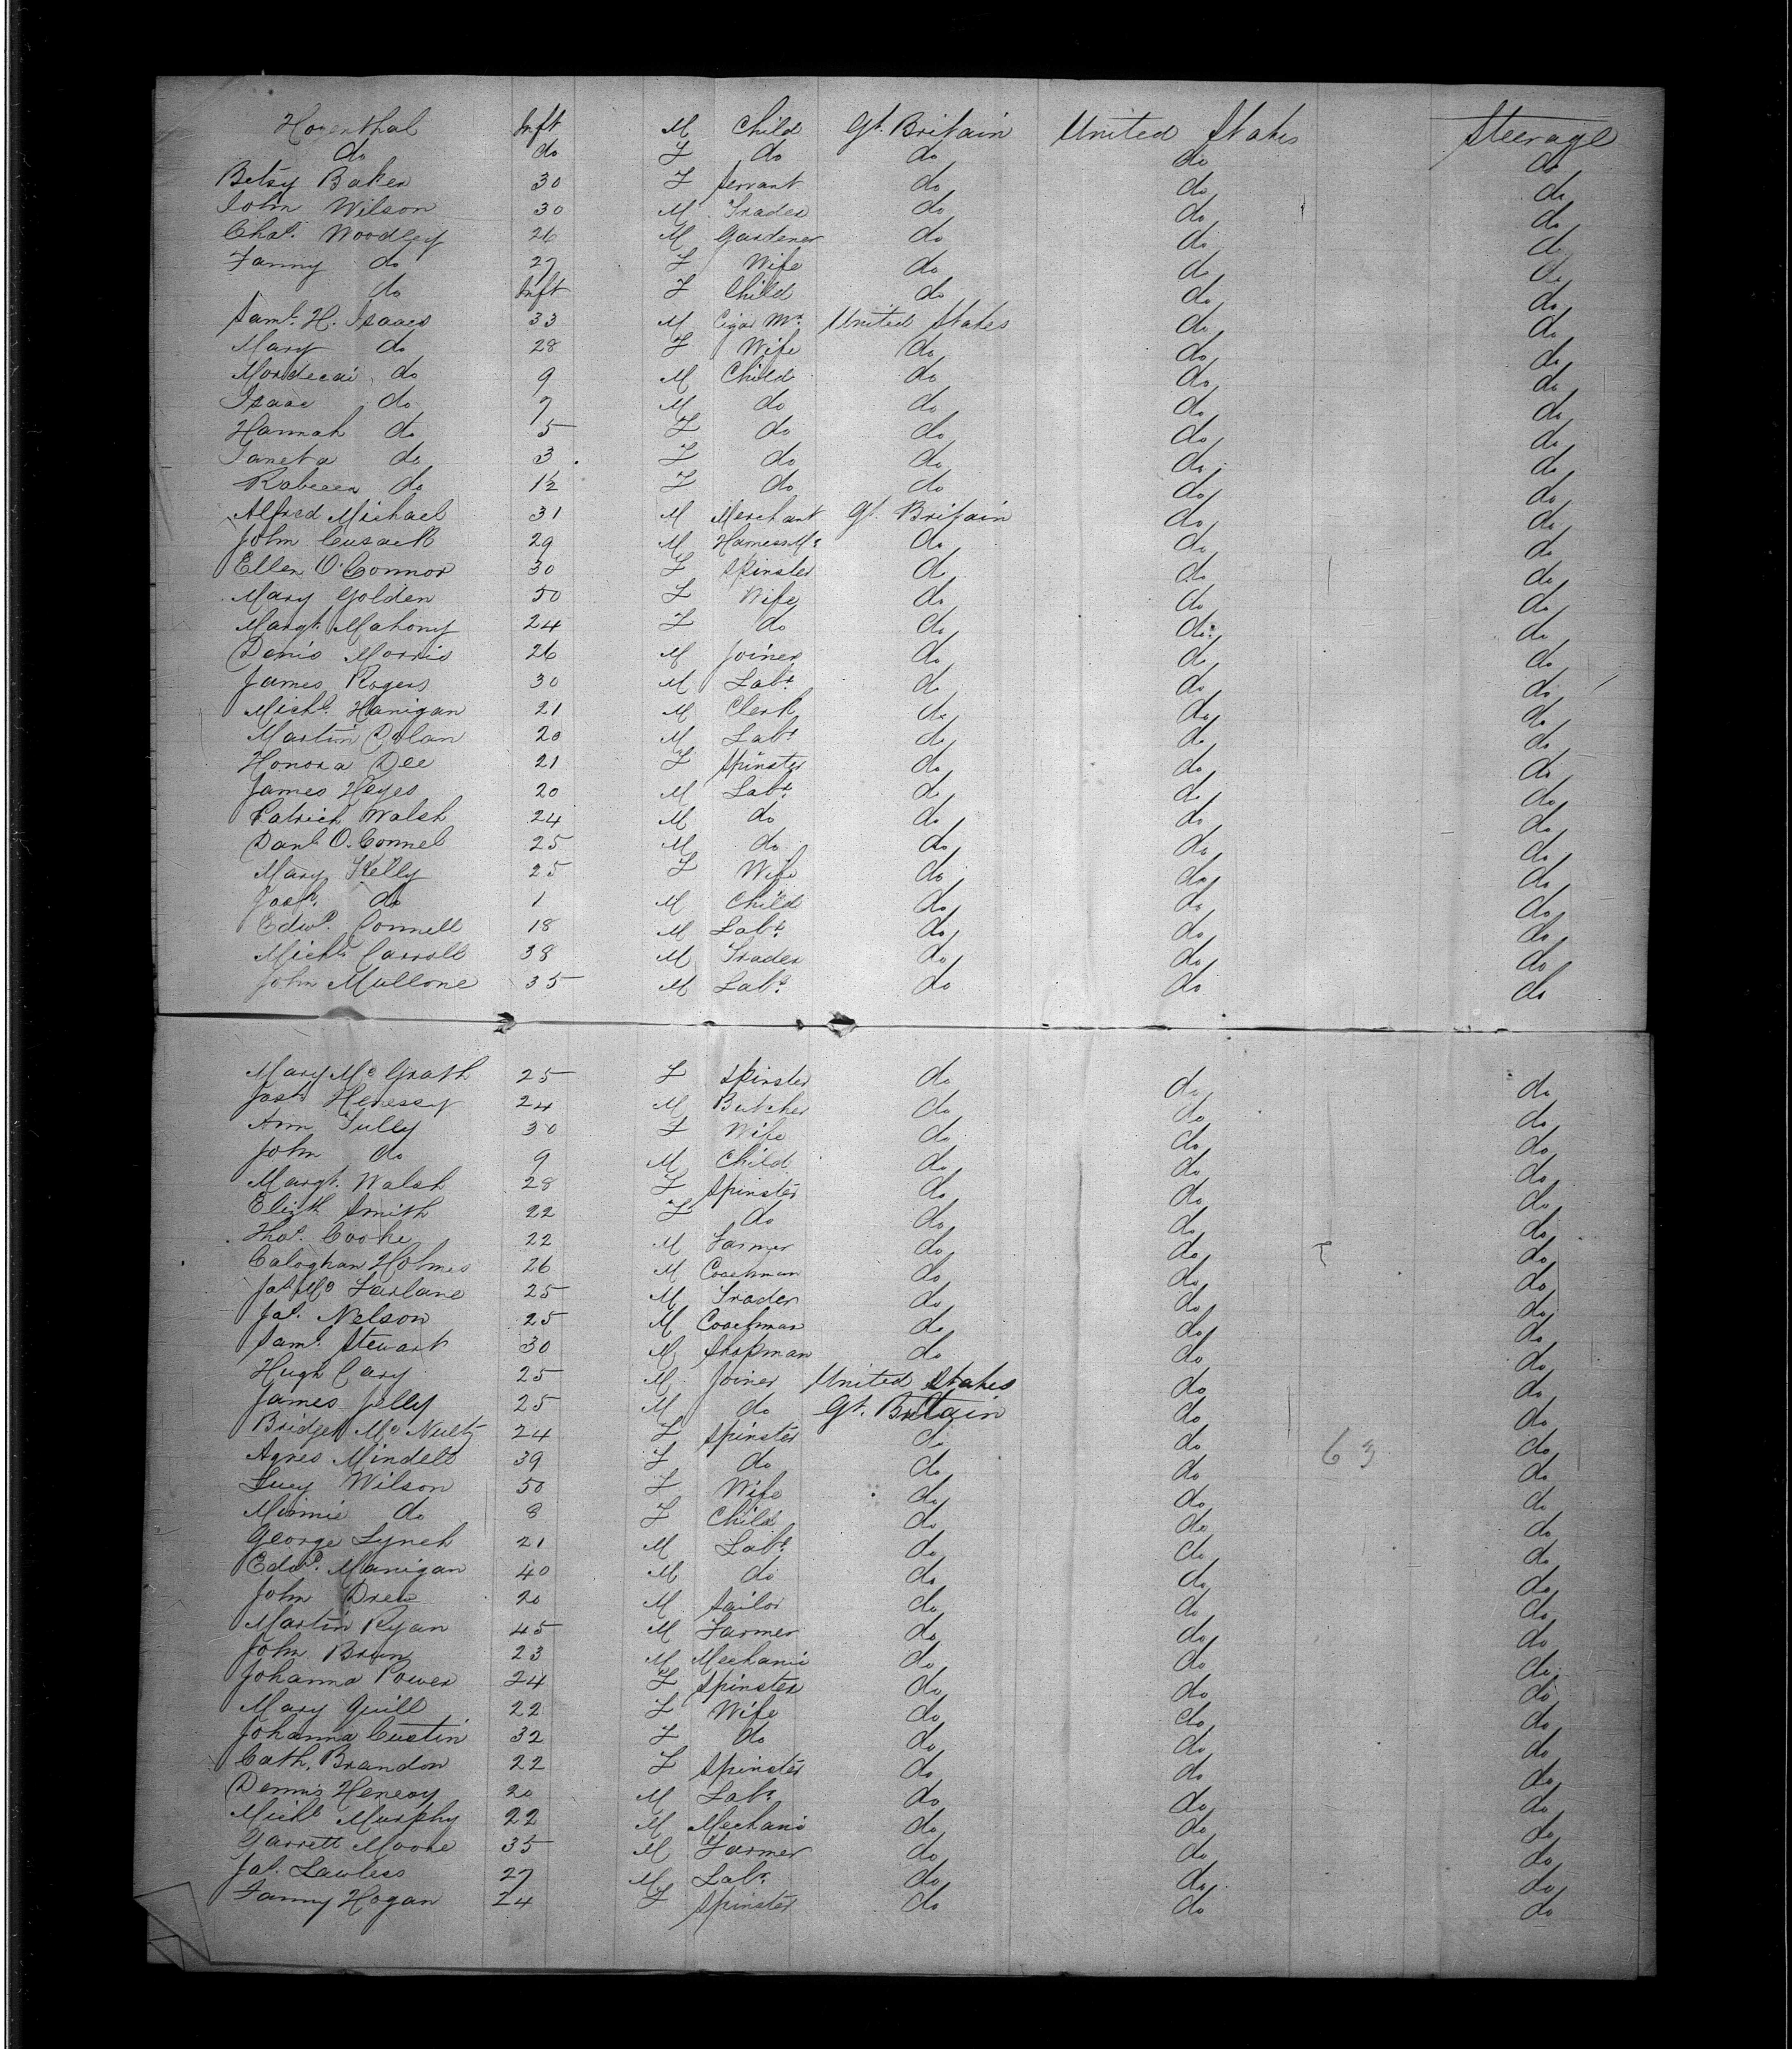 Hosenthal Inft M Child Gt. Britain United States Steerage
do do F do do do do
Betsy Baker 30 F Servant do do do
John Wilson 30 M Trader do do do
Chas. Woodley 26 M Gardener do do do
Fanny do 27 F Wife do do do
do Inft F Child do do do
Saml. H. Isaacs 33 M Cigar Mr. United States do do
Mary do 28 F Wife do do do
Mordecai do 9 M Child do do do
Isaac do 7 M do do do do
Hannah do 5 F do do do do
Janeta do 3 F do do do do
Rabecca do 1½ F do do do do
Alfred Michael 31 M Merchant Gt. Britain do do
John Cusack 29 M Harness Mr. do do do
Ellen O'Connor 30 F Spinster do do do
Mary Golden 50 F Wife do do do
Margt. Mahony 24 F do do do do
Denis Morris 26 M Joiner do do do
James Rogers 30 M Labr. do do do
Michl. Hanigan 21 M Clerk do do do
Martin Dolan 20 M Labr. do do do
Honora Dee 21 F Spinster do do do
James Heyes 20 M Labr. do do do
Patrick Walsh 24 M do do do do
Danl. O. Connel 25 M do do do do
Mary Kelly 25 F Wife do do do
Josh. do 1 M Child do do do
Edwd. Connell 18 M Labr. do do do
Michl. Carroll 38 M Trader do do do
John Mullone 35 M Labr. do do do
Mary Mc Grath 25 F Spinster do do do
Josh. Henessy 24 M Butcher do do do
Ann Tully 30 F Wife do do do
John do 9 M Child do do do
Margt. Walsh 28 F Spinster do do do
Elizth. Smith 22 F do do do do
Thos. Cooke 22 M Farmer do do do
Caloghan Holmes 26 M Coachman do do do
Jas. Mc Farlane 25 M Trader do do do
Jas. Nelson 25 M Coachman do do do
Saml. Stewart 30 M Shopman do do do
Hugh Cary 25 M Joiner United States do do
James Jelly 25 M do Gt. Britain do do
Bridget Mc Nulty 24 F Spinster do do do
Agnes Mindell 39 F do do do 63 do
Lucy Wilson 50 F Wife do do do
Minnie do 8 F Child do do do
George Lynch 21 M Labr. do do do
Edwd. Manigan 40 M do do do do
John Drew 20 M Sailor do do do
Martin Ryan 45 M Farmer do do do
John Brun 23 M Mechanic do do do
Johanna Power 24 F Spinster do do do
Mary Quill 22 F Wife do do do
Johanna Custin 32 F do do do do
Cath. Brandon 22 F Spinster do do do
Dennis Heneoy 20 M Labr. do do do
Michl. Murphy 22 M Mechanic do do do
Garrett Moore 35 M Farmer do do do
Jas. Lawless 27 M Labr. do do do
Fanny Hogan 24 F Spinster do do do